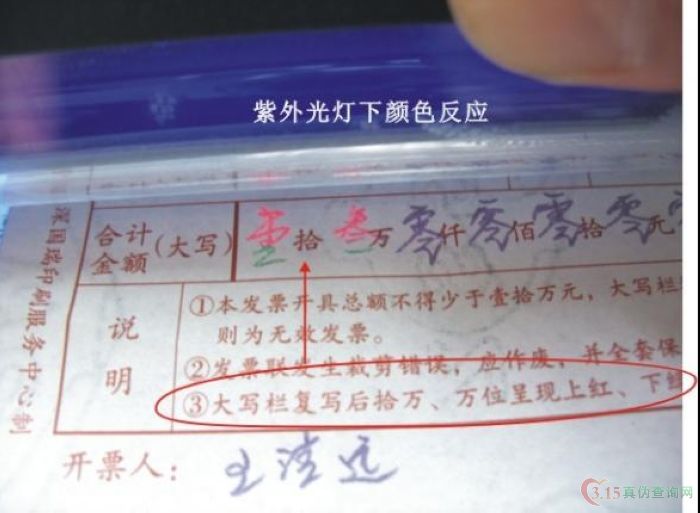 紫外光灯下颜色反应
合计金额(大写) 壹拾叁万零仟零佰零拾零元
说明
①本发票开具总额不得少于壹拾万元，大写栏
则为无效发票。
②发票联发生裁剪错误，应作废，并全套保
③大写栏复写后拾万、万位呈现上红、下
开票人：王清远
印刷服务中心制
3.15真伪查询网